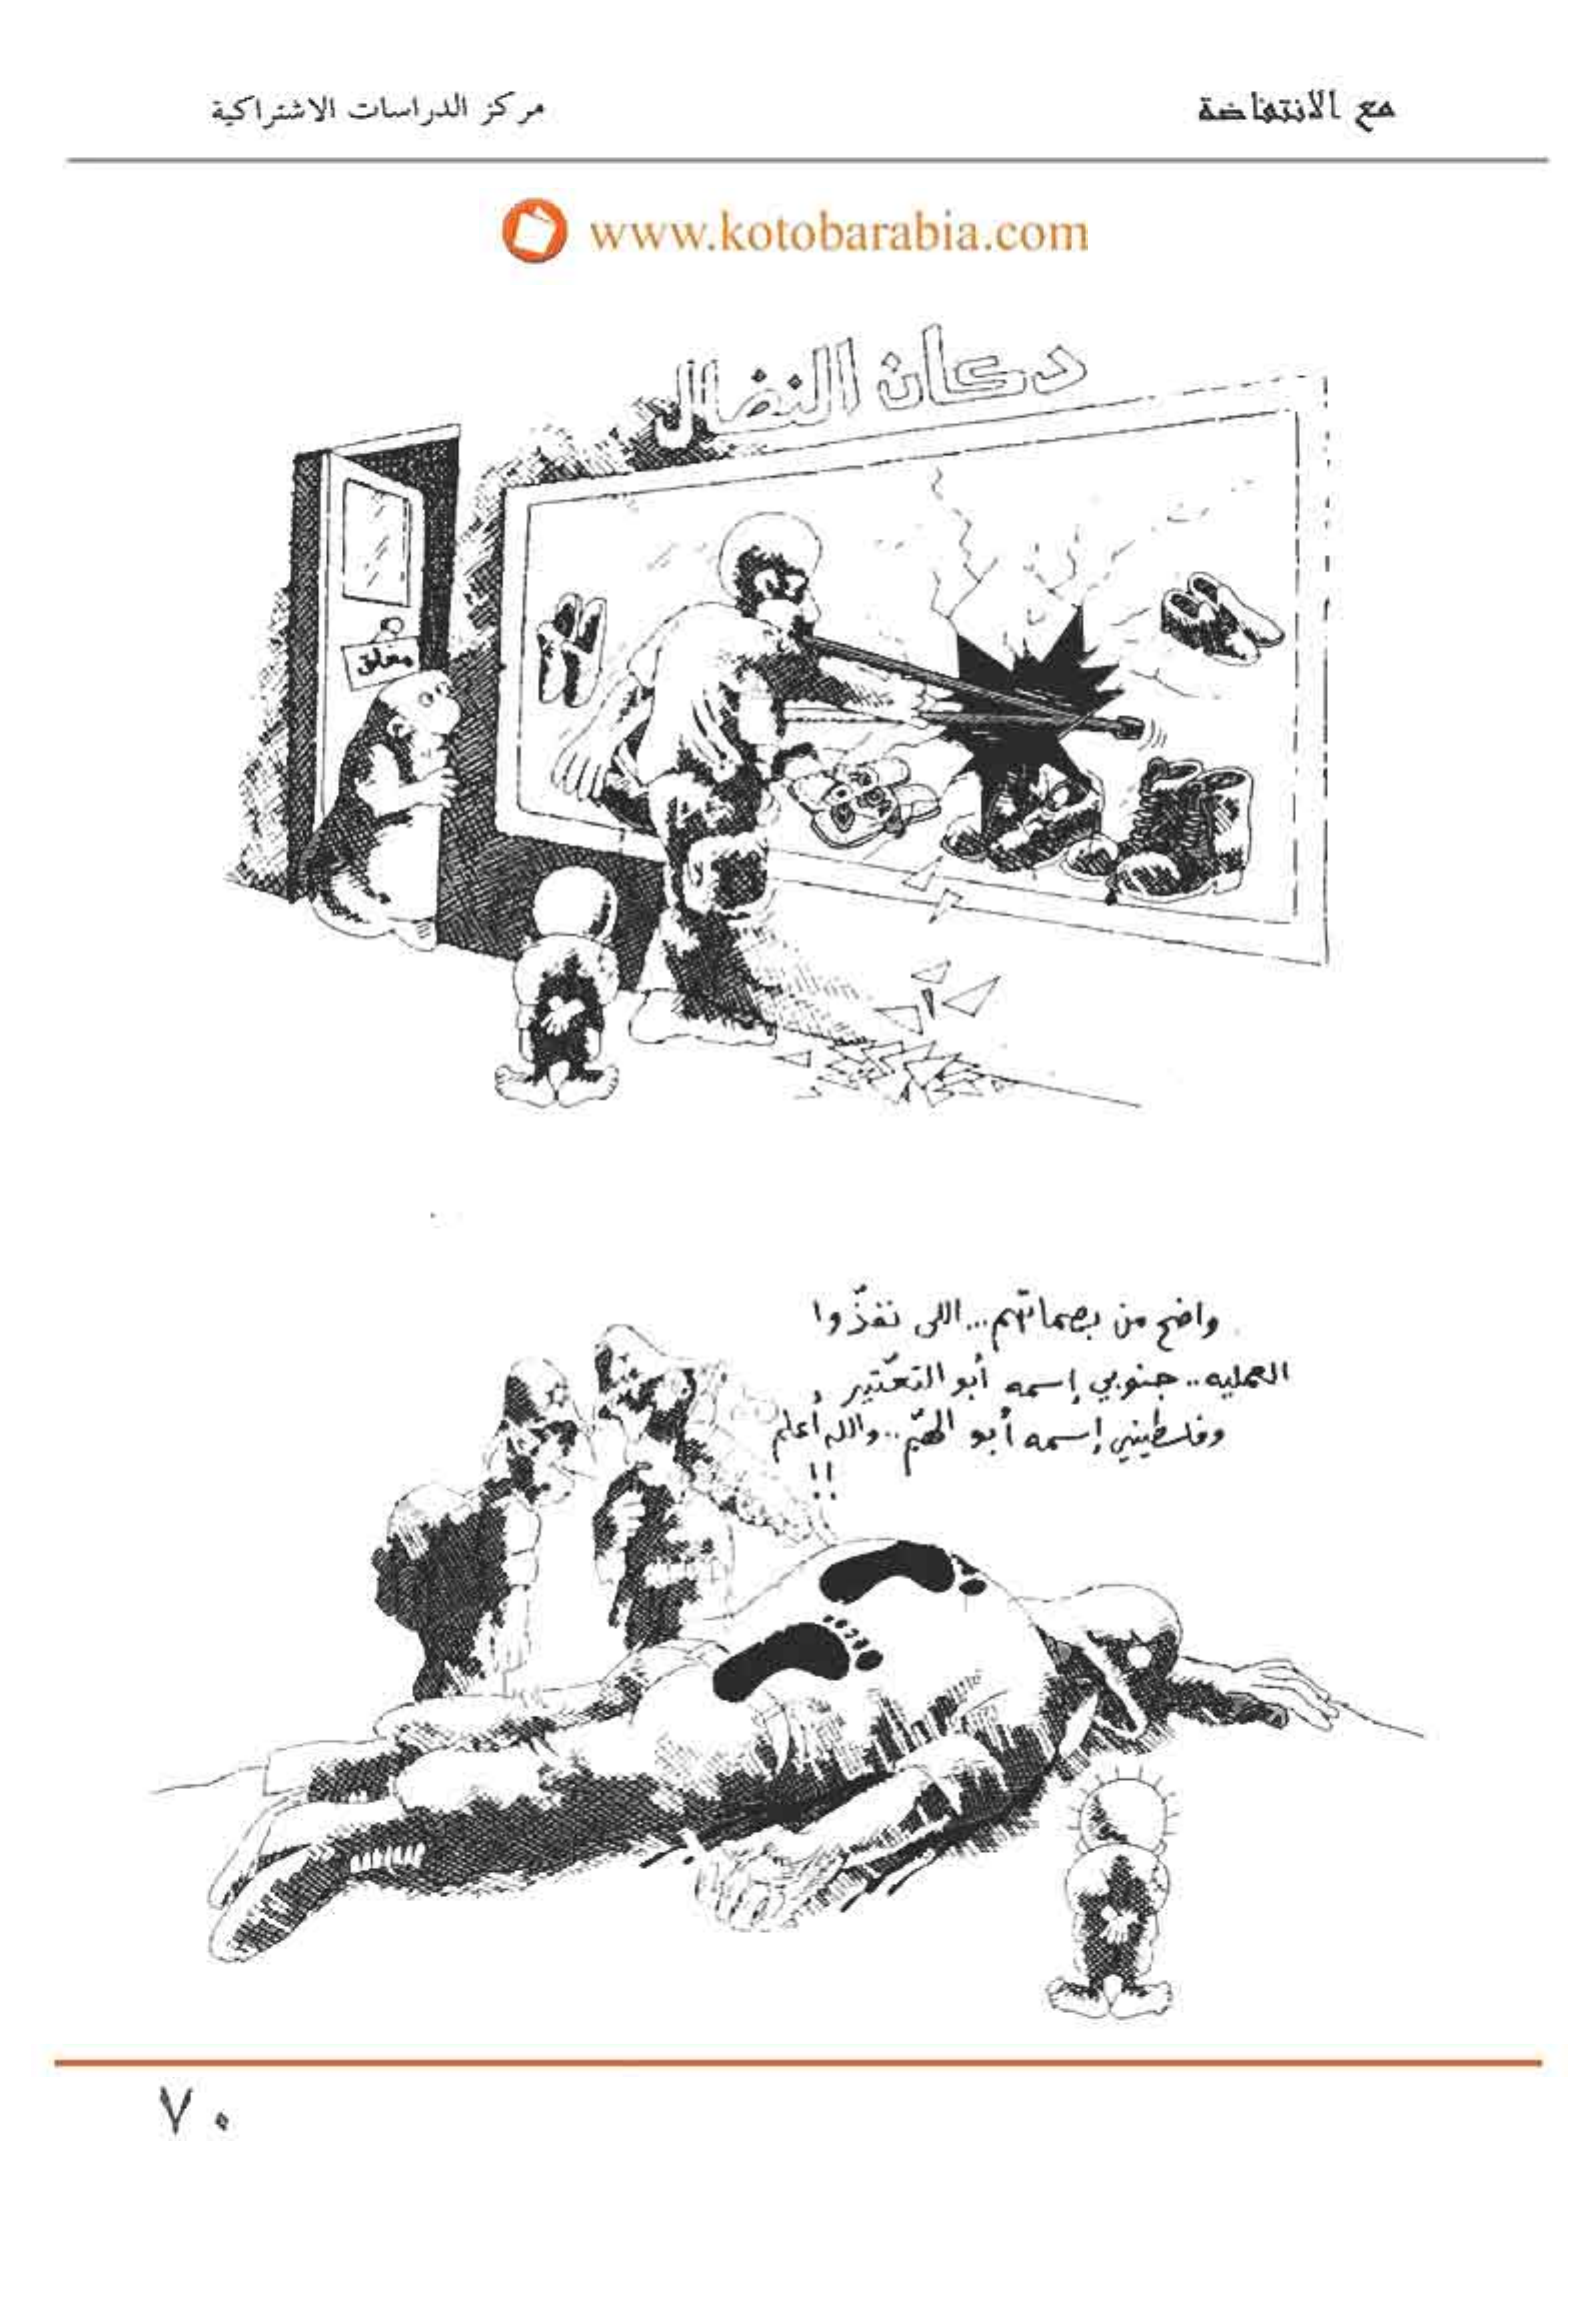 مع الانتفاضة
مركز الدراسات الاشتراكية
www.kotobarabia.com
دكان النضال
مغلق
واضح من بصماتهم... اللي نفذّوا
العمليه.. جنوبي إسمه أبو التعتير و
وفلسطيني إسمه أبو الهمّ.. والله أعلم
!!
٧٠